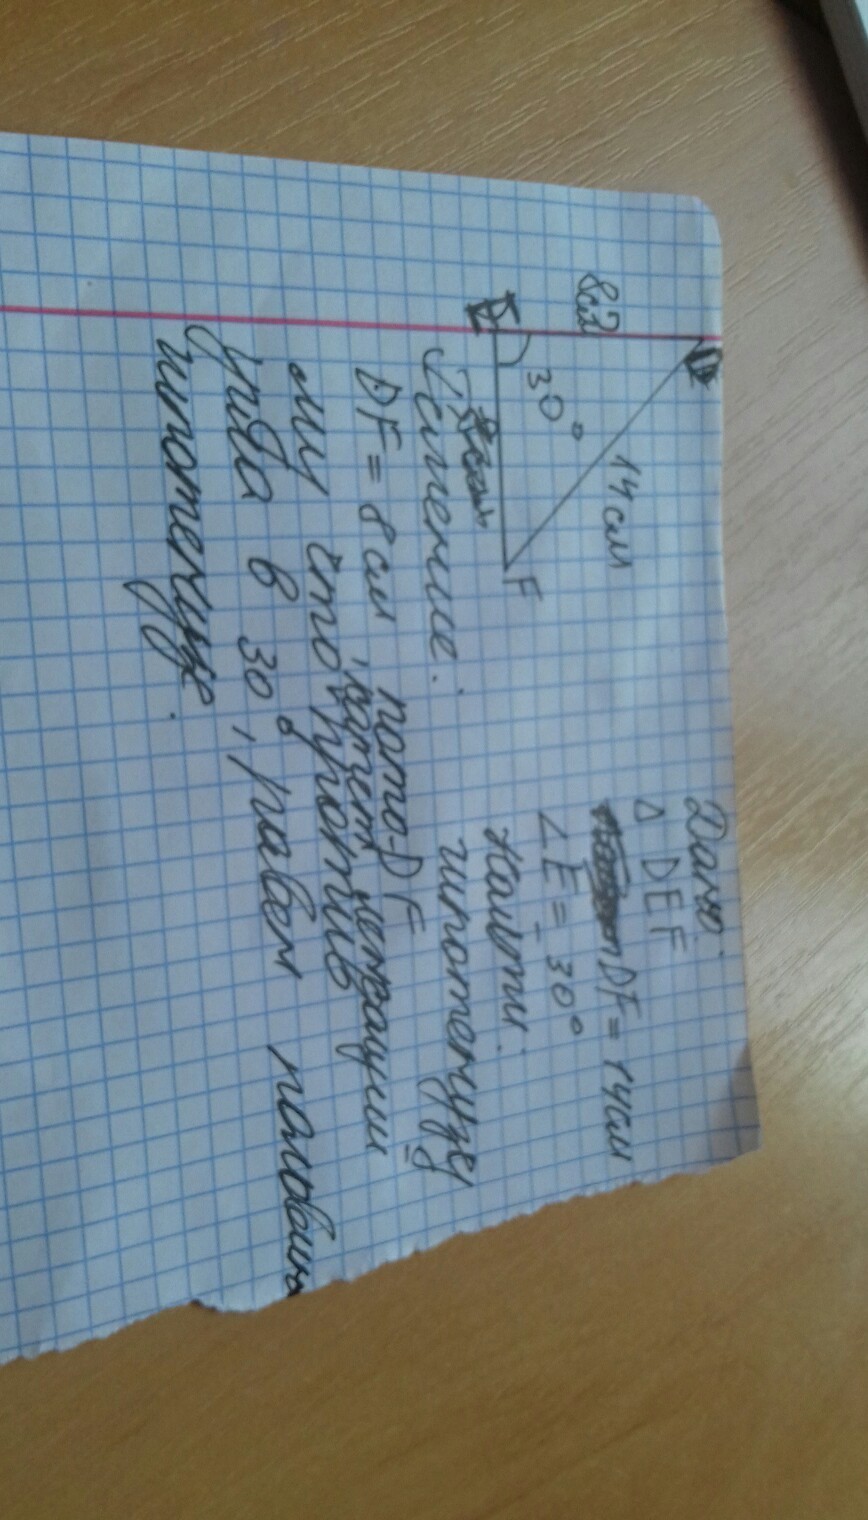 Дано:
Δ DEF
DF = 14см
∠E = 30°
Найти:
гипотенузу
D
14 см
8см
?
30°
E
F
Решение:
DF = 8 см, пото-
му что катет DF лежащий
против
угла в 30°, равен половина
гипотенузе.